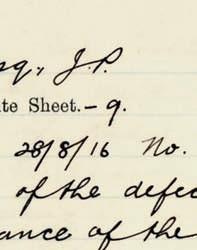 sq., J.P.
te Sheet. – 9.
28/8/16 No.
of the defec
ance of the